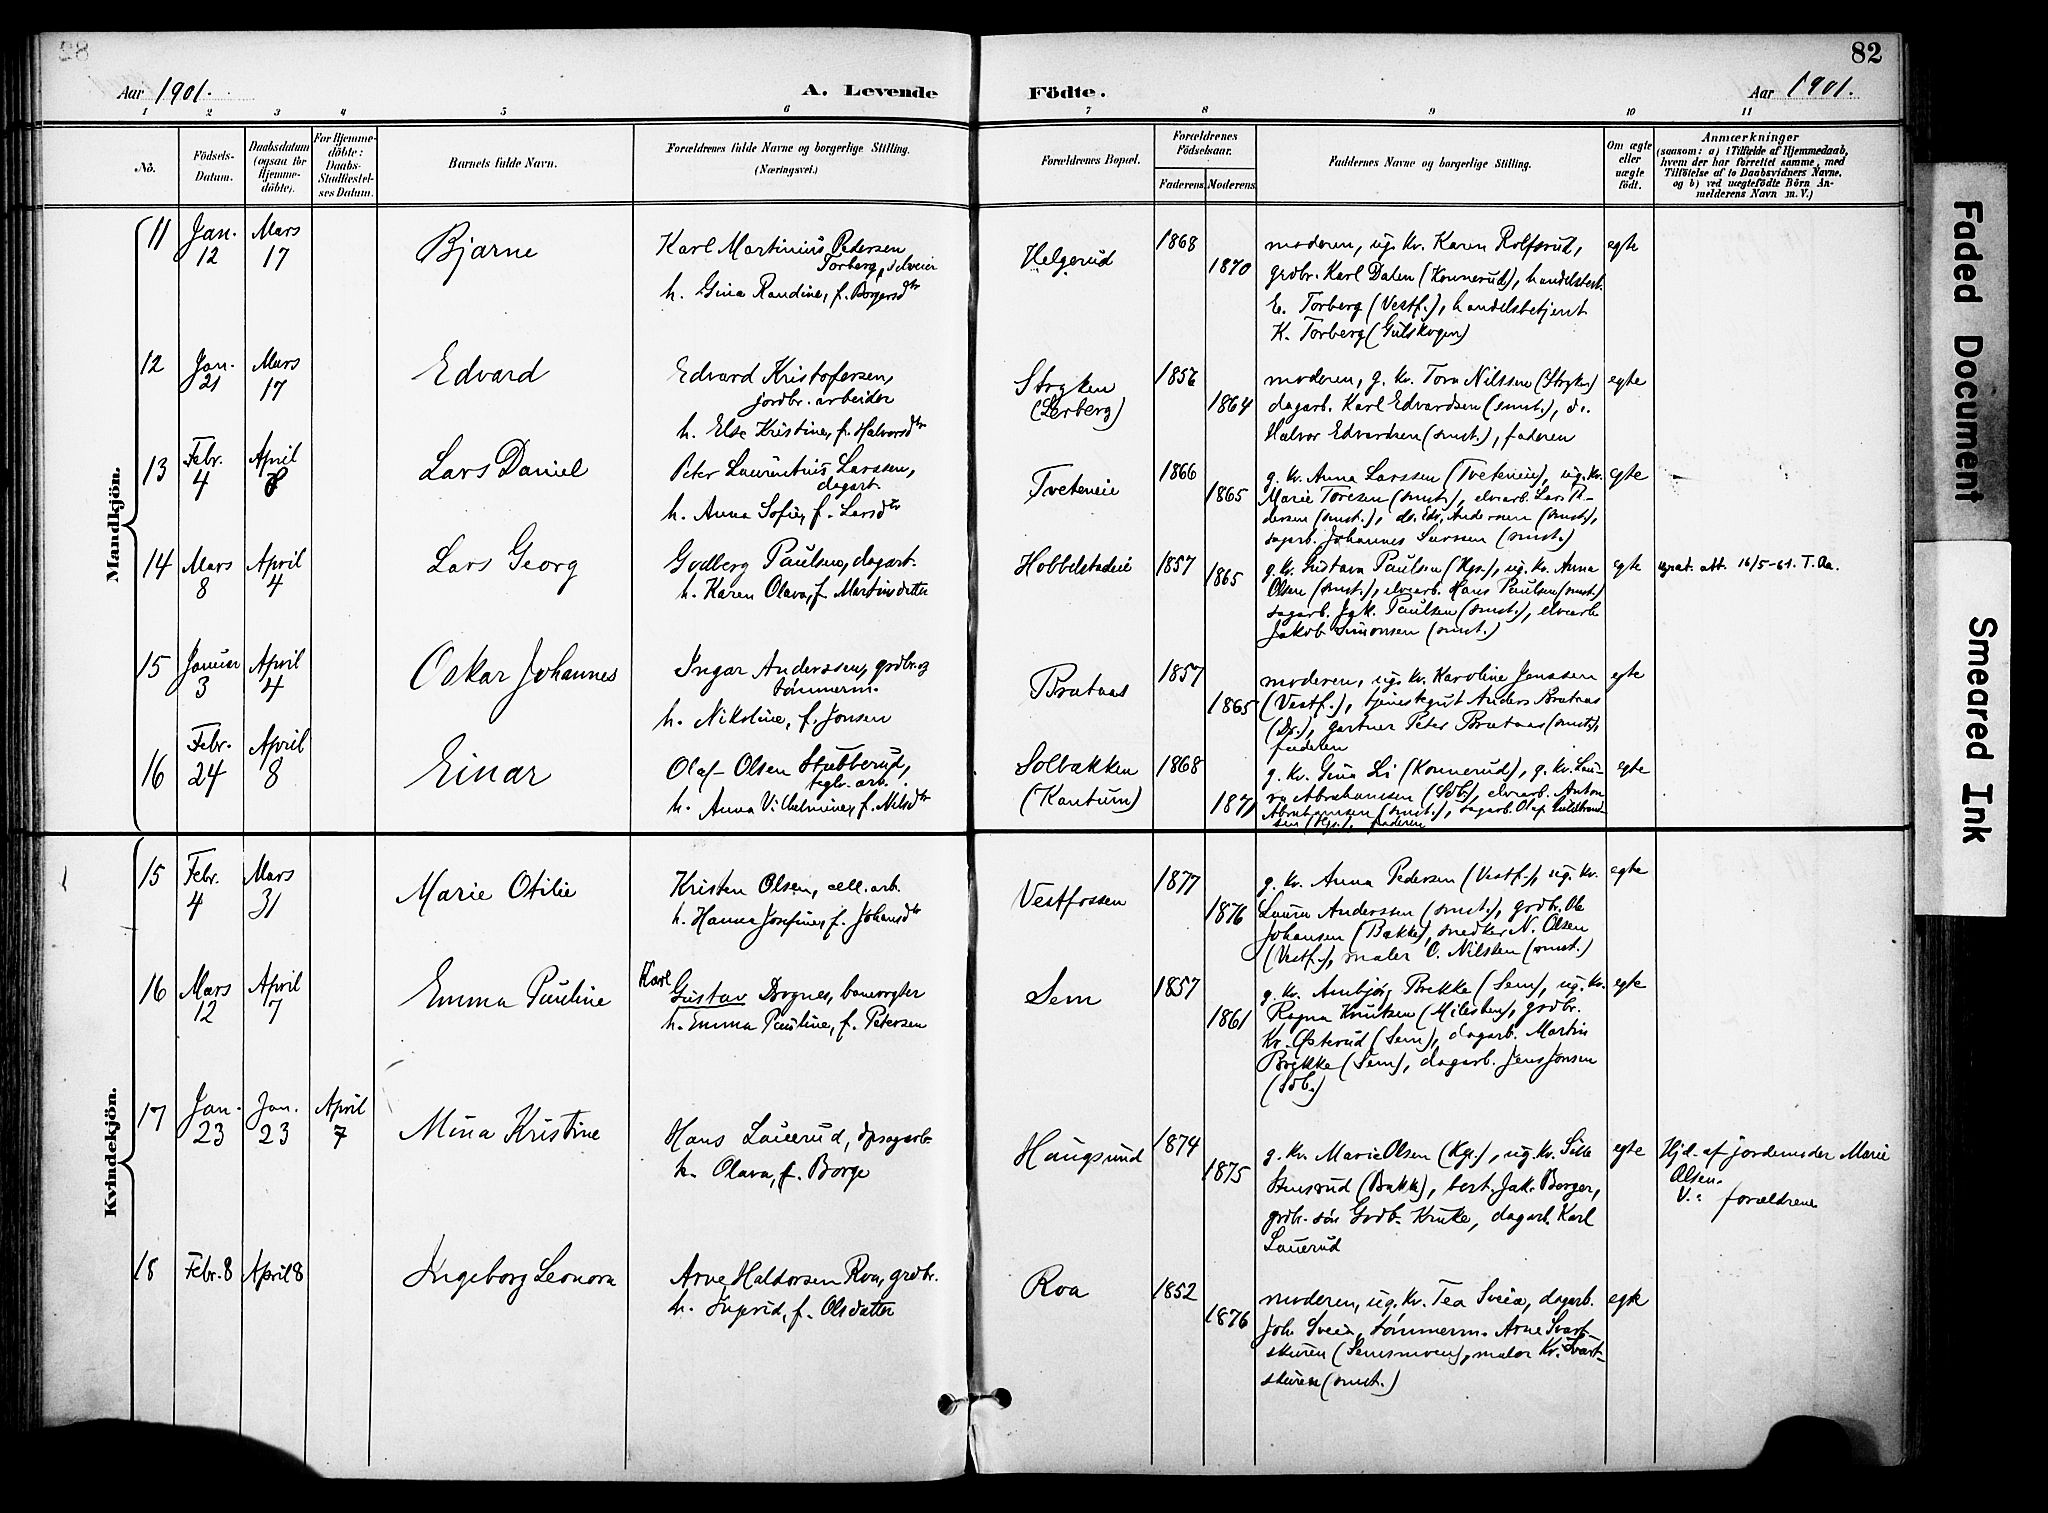 82
Aar 1901.
A. Levende Födte.
Aar 1901.
1 2 3 4 5 6 7 8 9 10 11
No.
Födsels-Datum.
Daabsdatum (ogsaa for Hjemmedöbte).
For Hjemmedöbte: Daabs-Stadfæstelses Datum.
Barnets fulde Navn.
Forældrenes fulde Navne og borgerlige Stilling. (Næringsvei.)
Forældrenes Bopæl.
Forældrenes Födselsaar.
Faderens. Moderens.
Faddernes Navne og borgerlige Stilling.
Om ægte eller uægte födt.
Anmærkninger
(saasom: a) i Tilfælde af Hjemmedaab,
hvem der har forrettet samme, med
Tilföielse af to Daabsvidners Navne,
og b) ved uægtefödte Börn An-
melderens Navn m. V.)
Mandkjön.
11 Jan. 12 Mars 17 Bjarne
Karl Martinius Pedersen
Torberg, selveier
h. Gina Randine, f. Borgersdtr
Helgerud 1868 1870
moderen, ug. kv. Karen Rolfsrud,
grdbr. Karl Dalen (Konnerud), handelsbest.
E. Torberg (Vestf.), handelsbetjent
K. Torberg (Gulskogen)
egte
12 Jan. 21 Mars 17 Edvard
Edvard Kristofersen,
jordbr. arbeider
h. Else Kristine, f. Halvorsdtr
Stryken
(Lerberg)
1856 1864
moderen, g. kv. Tora Nilssen (Stryk.)
dagarb. Karl Edvardsen (smst.), do.
Halvor Edvardsen (smst.), faderen
egte
13 Febr. 4 April 8 Lars Daniel
Peter Laurentius Larssen,
dagarb.
h. Anna Sofie, f. Larsdtr
Tveteneie 1866 1865
g. kv. Anna Larssen (Tveteneie), ug. kv.
Marie Toresen (smst.), elvearb. Lars Pe-
dersen (smst.), do. Edv. Andersen (smst.),
sagarb. Johannes Larssen (smst.)
egte
14 Mars 8 April 4 Lars Georg
Godberg Paulsen, dagarb.
h. Karen Olava, f. Martinsdatter
Hobbelstadeie 1857 1865
g. kv. Gustava Paulsen (Hgs.), ug. kv. Anna
Olsen (smst.), elvearb. Hans Paulsen (smst.)
sagarb. Jak. Paulsen (smst.), elvearb.
Jakob Simonsen (smst.)
egte
att. 16/5-61. T. Aa.
15 Januar 3 April 4 Oskar Johannes
Ingar Anderssen, grdbr. og
tömmerm.
h. Nikoline, f. Jonsen
Brataas 1857 1865
moderen, ug. kv. Karoline Jonssen
(Vestf.), tjenestegut Anders Brataas
(Ds.), gartner Peter Brataas (smst.),
faderen
egte
16 Febr. 24 April 8 Einar
Olaf Olsen Stubberud,
teglv. arb.
h. Anna Vilhelmine, f. Nilsdtr
Solbakken
(Kantum)
1868 1871
g. kv. Gina Li (Konnerud), g. kv. Lau-
ra Abrahamsen (Sdb.), elvearb. Anton
Abrahamsen (smst.), sagarb. Olaf Guldbrand-
sen (Hgs.), faderen
egte
Kvindekjön.
15 Febr. 4 Mars 31 Marie Otilie
Kristen Olsen, cell. arb.
h. Hanna Josefine, f. Johansdtr
Vestfossen 1877 1876
g. kv. Anna Pedersen (Vestf.), ug. kv.
Laura Anderssen (smst.), grdbr. Ole
Johansen (Bakke), snedker N. Olsen
(Vestf.), maler O. Nilsken (smst.)
egte
16 Mars 12 April 7 Emma Pauline
Karl
Gustav Dognes, banevogter
h. Emma Pauline, f. Petersen
Sem 1857 1861
g. kv. Ambjörg Brekke (Sem), ug. kv.
Ragna Knutsen (Milesten), grdbr.
Kr. Österud (Sem), dagarb. Martin
Brekke (Sem), dagarb. Jens Jonsen
(Sdb.)
egte
17 Jan. 23 Jan. 23 April 7 Mina Kristine
Hans Lauerud, dpsagarb.
h. Olava, f. Borge
Haugsund 1874 1875
g. kv. Marie Olsen (Hgs.), ug. kv. Sille
Stensrud (Bakk), best. Jak. Borger,
grdbr. sön Gudb. Kruke, dagarb. Karl
Lauerud
egte
Hjd. af jordemoder Marie
Olsen.
V.: forældrene
18 Febr. 8 April 8 Ingeborg Leonora
Arne Haldorsen Roa, grdbr.
h. Ingrid, f. Olsdatter
Roa 1852 1876
moderen, ug. kv. Tea Sveia, dagarb.
Joh. Sveia, tömmerm. Arne Svart-
skuren (Semsmoen), maler Kr. Svart-
skuren (smst.)
egte
Faded Document
Smeared Ink